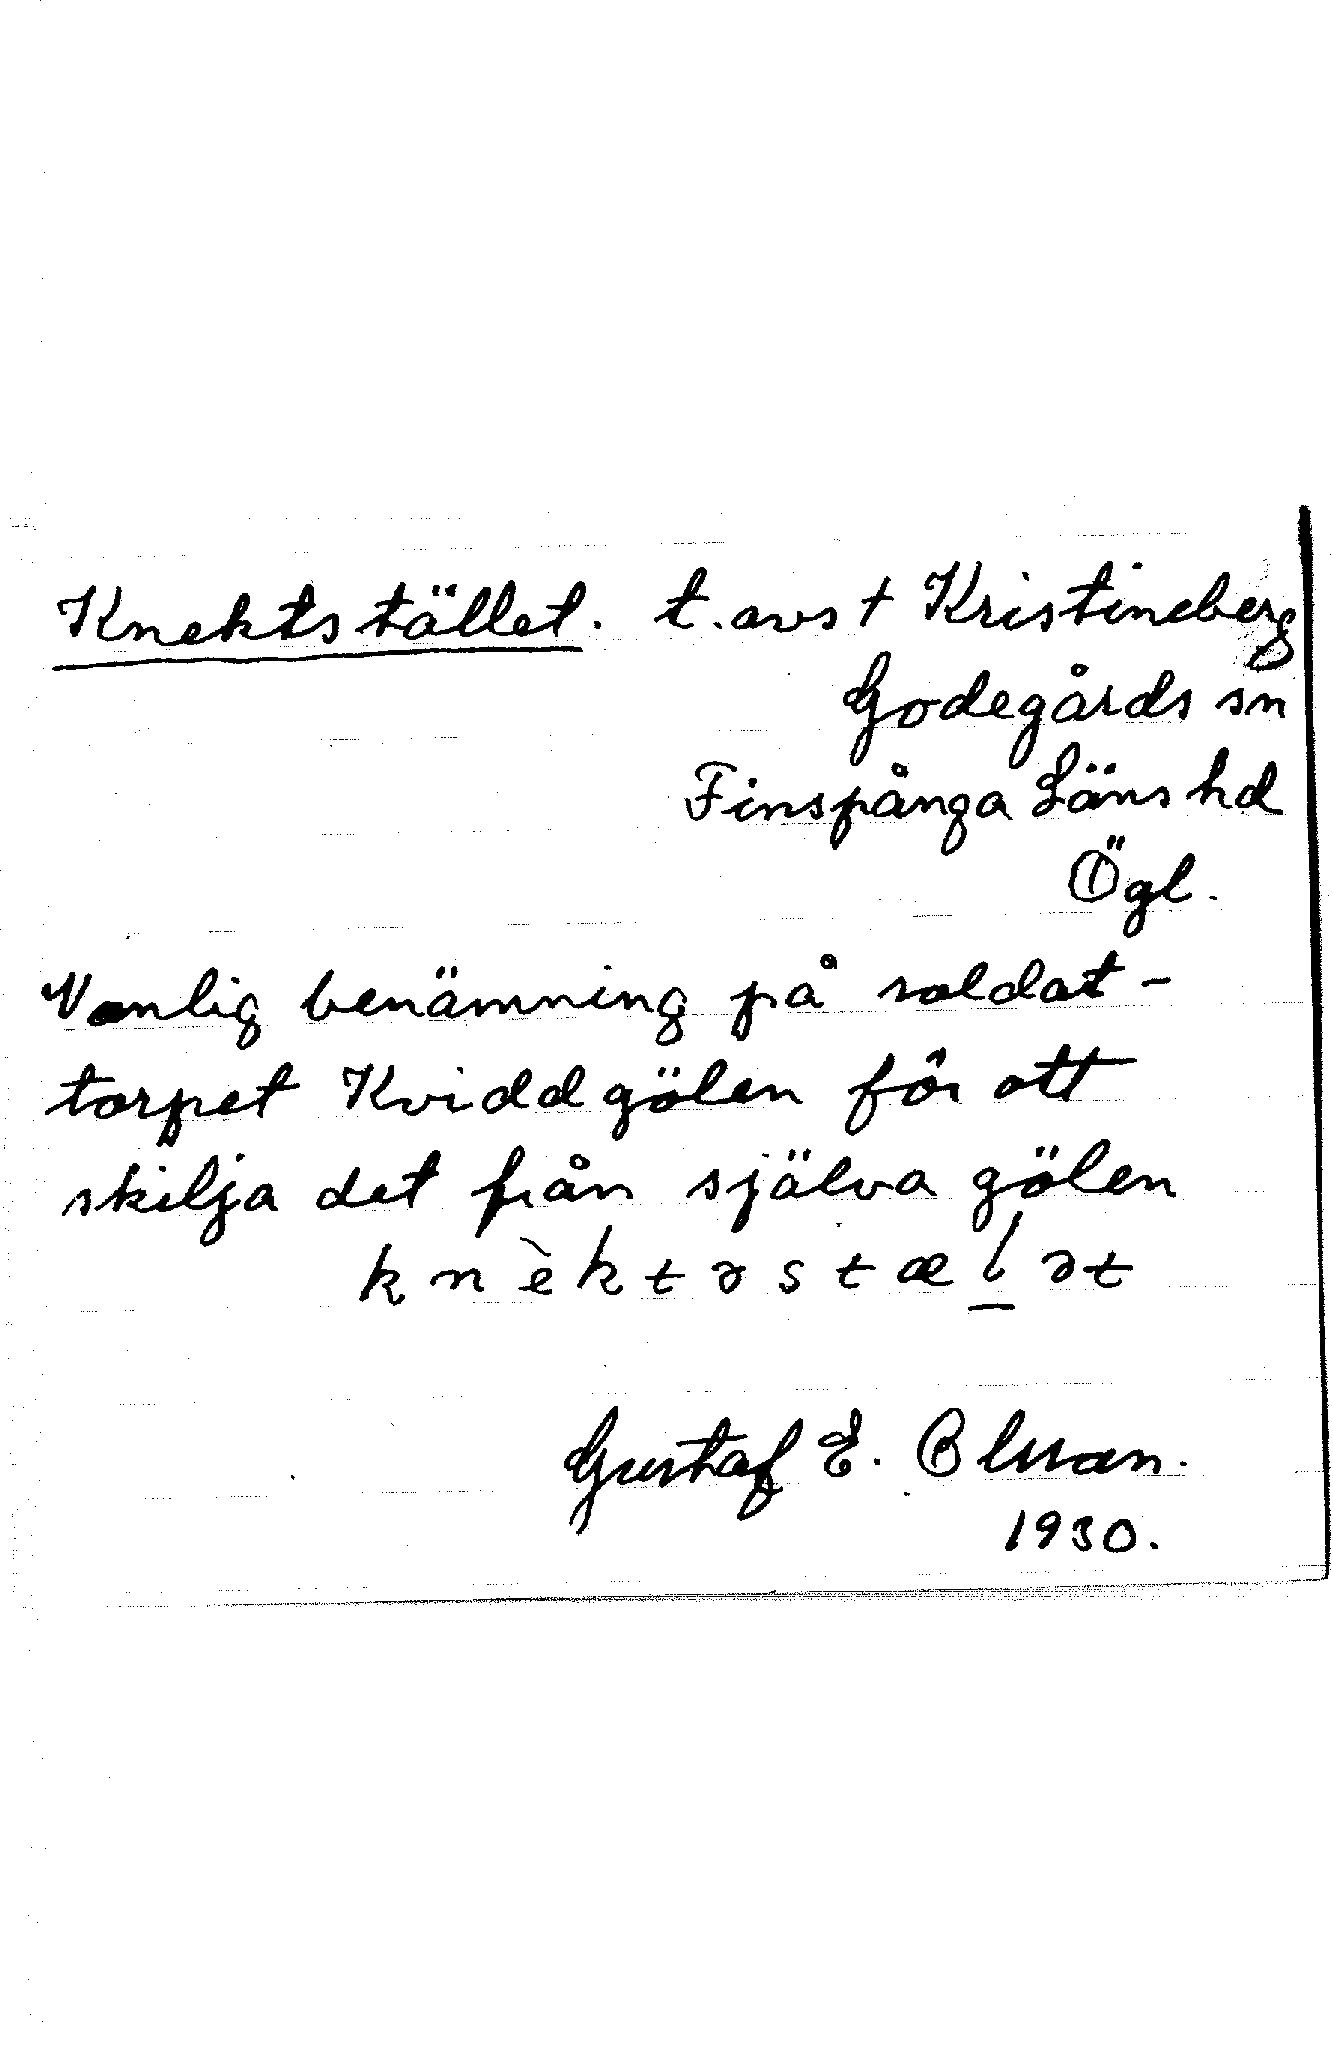 Knektstället. t. avs t Kristineberg
Godegårds sn
Finspånga Läns hd
Ögl.
Vanlig benämning på soldat-
torpet Kviddgölen för att
skilja det från själva gölen
knèktəstælət
Gustaf E. Olsson.
1930.